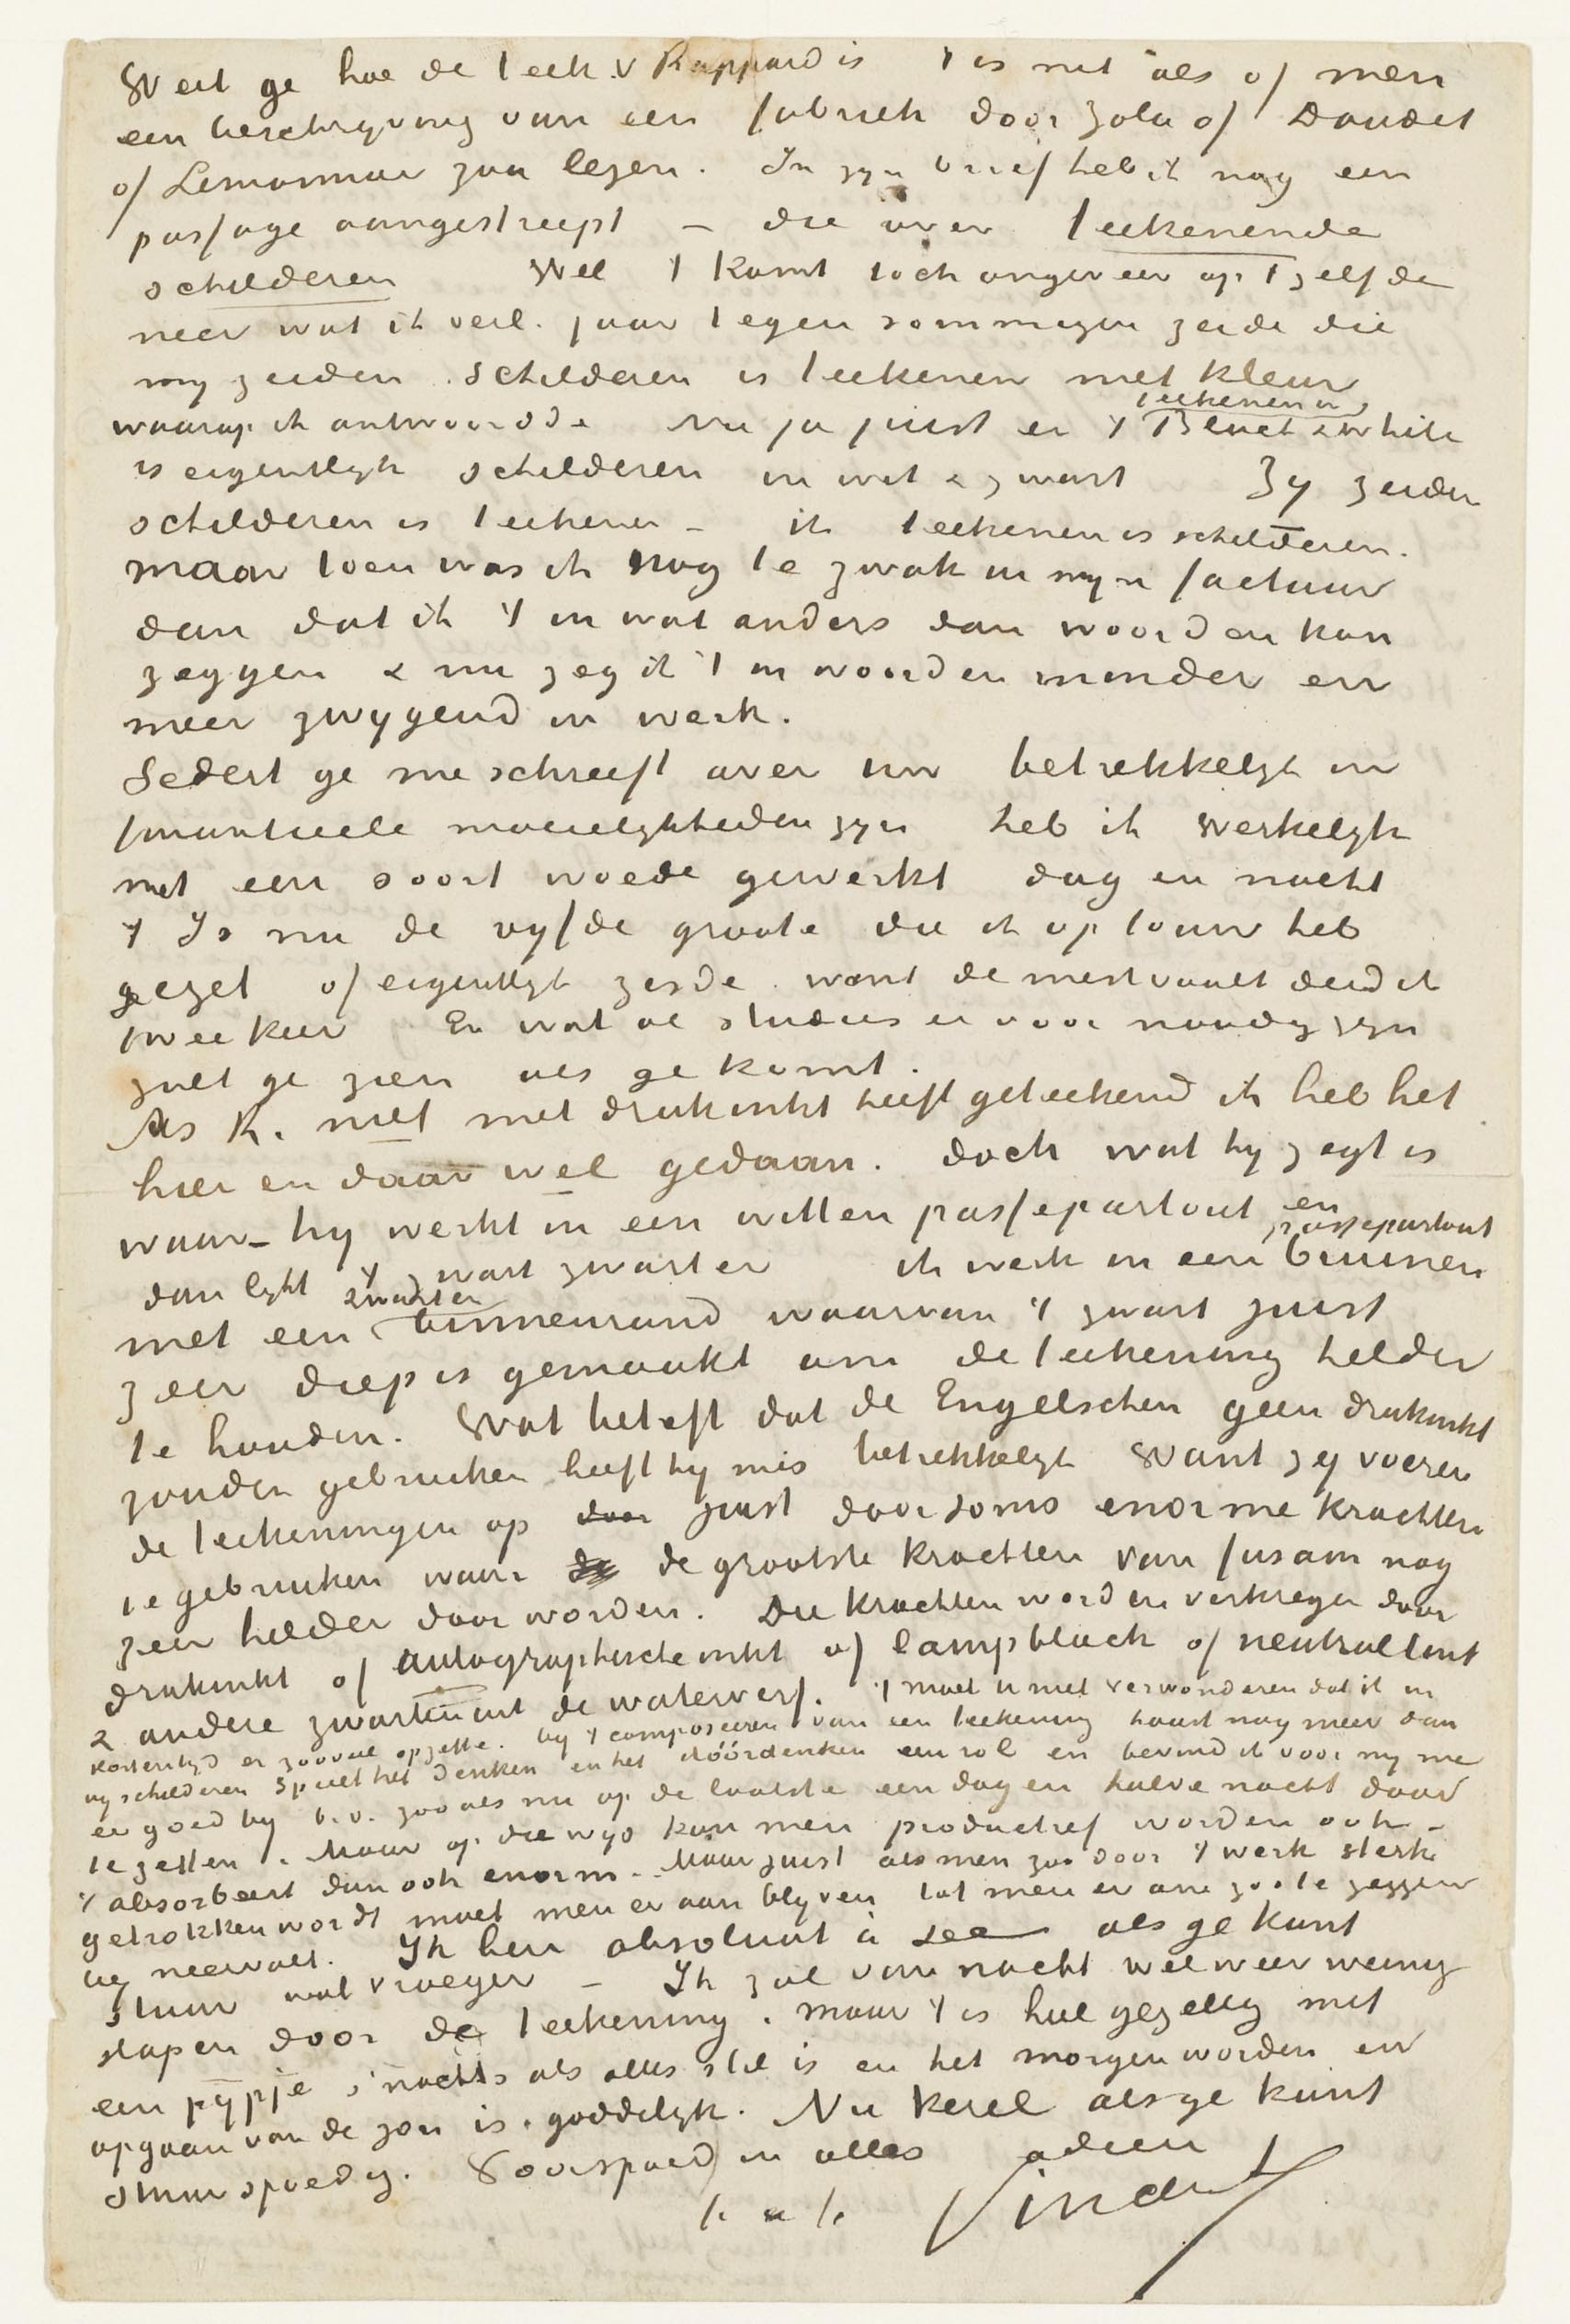 Weet ge hoe de teek. v Rappard is 't is net als of men
een beschryving van een fabriek door Zola of Daudet
of Lemonnier zou lezen. In zyn brief heb ik nog een
passage aangestreept – die over teekenende
schilderen Wel 't komt toch ongeveer op 't zelfde
neer wat ik verl. jaar tegen sommigen zeide die
my zeiden. schilderen is teekenen met kleur
waarop ik antwoordde nu ja juist en 't teekenen in Black & white
is eigentlyk schilderen in wit & zwart Zy zeiden
schilderen is teekenen – ik teekenen is schilderen.
maar toen was ik nog te zwak in myn factuur
dan dat ik 't in wat anders dan woorden kon
zeggen & nu zeg ik 't in woorden minder en
meer zwygend in werk.
Sedert ge me schreeft over uw betrekkelyk in
finantieele moeielykheden zyn heb ik werkelyk
met een soort woede gewerkt dag en nacht
't Is nu de vyfde groote die ik op touw heb
gezet of eigentlyk zesde want de mestvaalt deed ik
twee keer En wat al studies er voor noodig zyn
zult ge zien als ge komt.
Als R. niet met drukinkt heeft geteekend ik heb het
hier en daar wel gedaan. doch wat hy zegt is
waar – hy werkt in een witten passepartout en
dan lykt 't zwart zwarter ik werk in een bruinen passepartout
met een zwarten binnenrand waarvan 't zwart juist
zeer diep is gemaakt om de teekening helder
te houden. Wat betreft dat de Engelschen geen drukinkt
zouden gebruiken heeft hy mis betrekkelyk Want zy voeren
de teekeningen op door juist door soms enorme krachten
te gebruiken waar de grootste krachten van fusain nog
zeer helder door worden. Die krachten worden verkregen door
drukinkt of autographische inkt of lampblack of neutraltint
& andere zwarten uit de waterverf. 't moet u niet verwonderen dat ik in
korten tyd er zooveel opzette. by 't componeeren van een teekening haast nog meer dan
by schilderen speelt het denken en het dóórdenken een rol en bevind ik voor my me
er goed by b.v. zooals nu op de laatste een dag en halve nacht door
te zetten. Maar op die wys kan men productief worden ook –
't absorbeert dan ook enorm – Maar juist als men zoo door 't werk sterk
getrokken wordt moet men er aan blyven tot men er om zoo te zeggen
by neervalt. Ik ben absoluut à sec als ge kunt
stuur wat vroeger – Ik zal van nacht wel weer weinig
slapen door de teekening. maar 't is heel gezellig met
een pypje s'nachts als alles stil is en het morgen worden en
opgaan van de zon is goddelyk. Nu kerel als ge kunt
stuur spoedig. Voorspoed in alles adieu
t. à t. Vincent